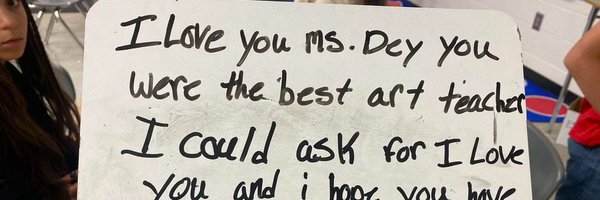 I Love you ms. Dey you
were the best art teacher
I could ask for I Love
you and i hope you have